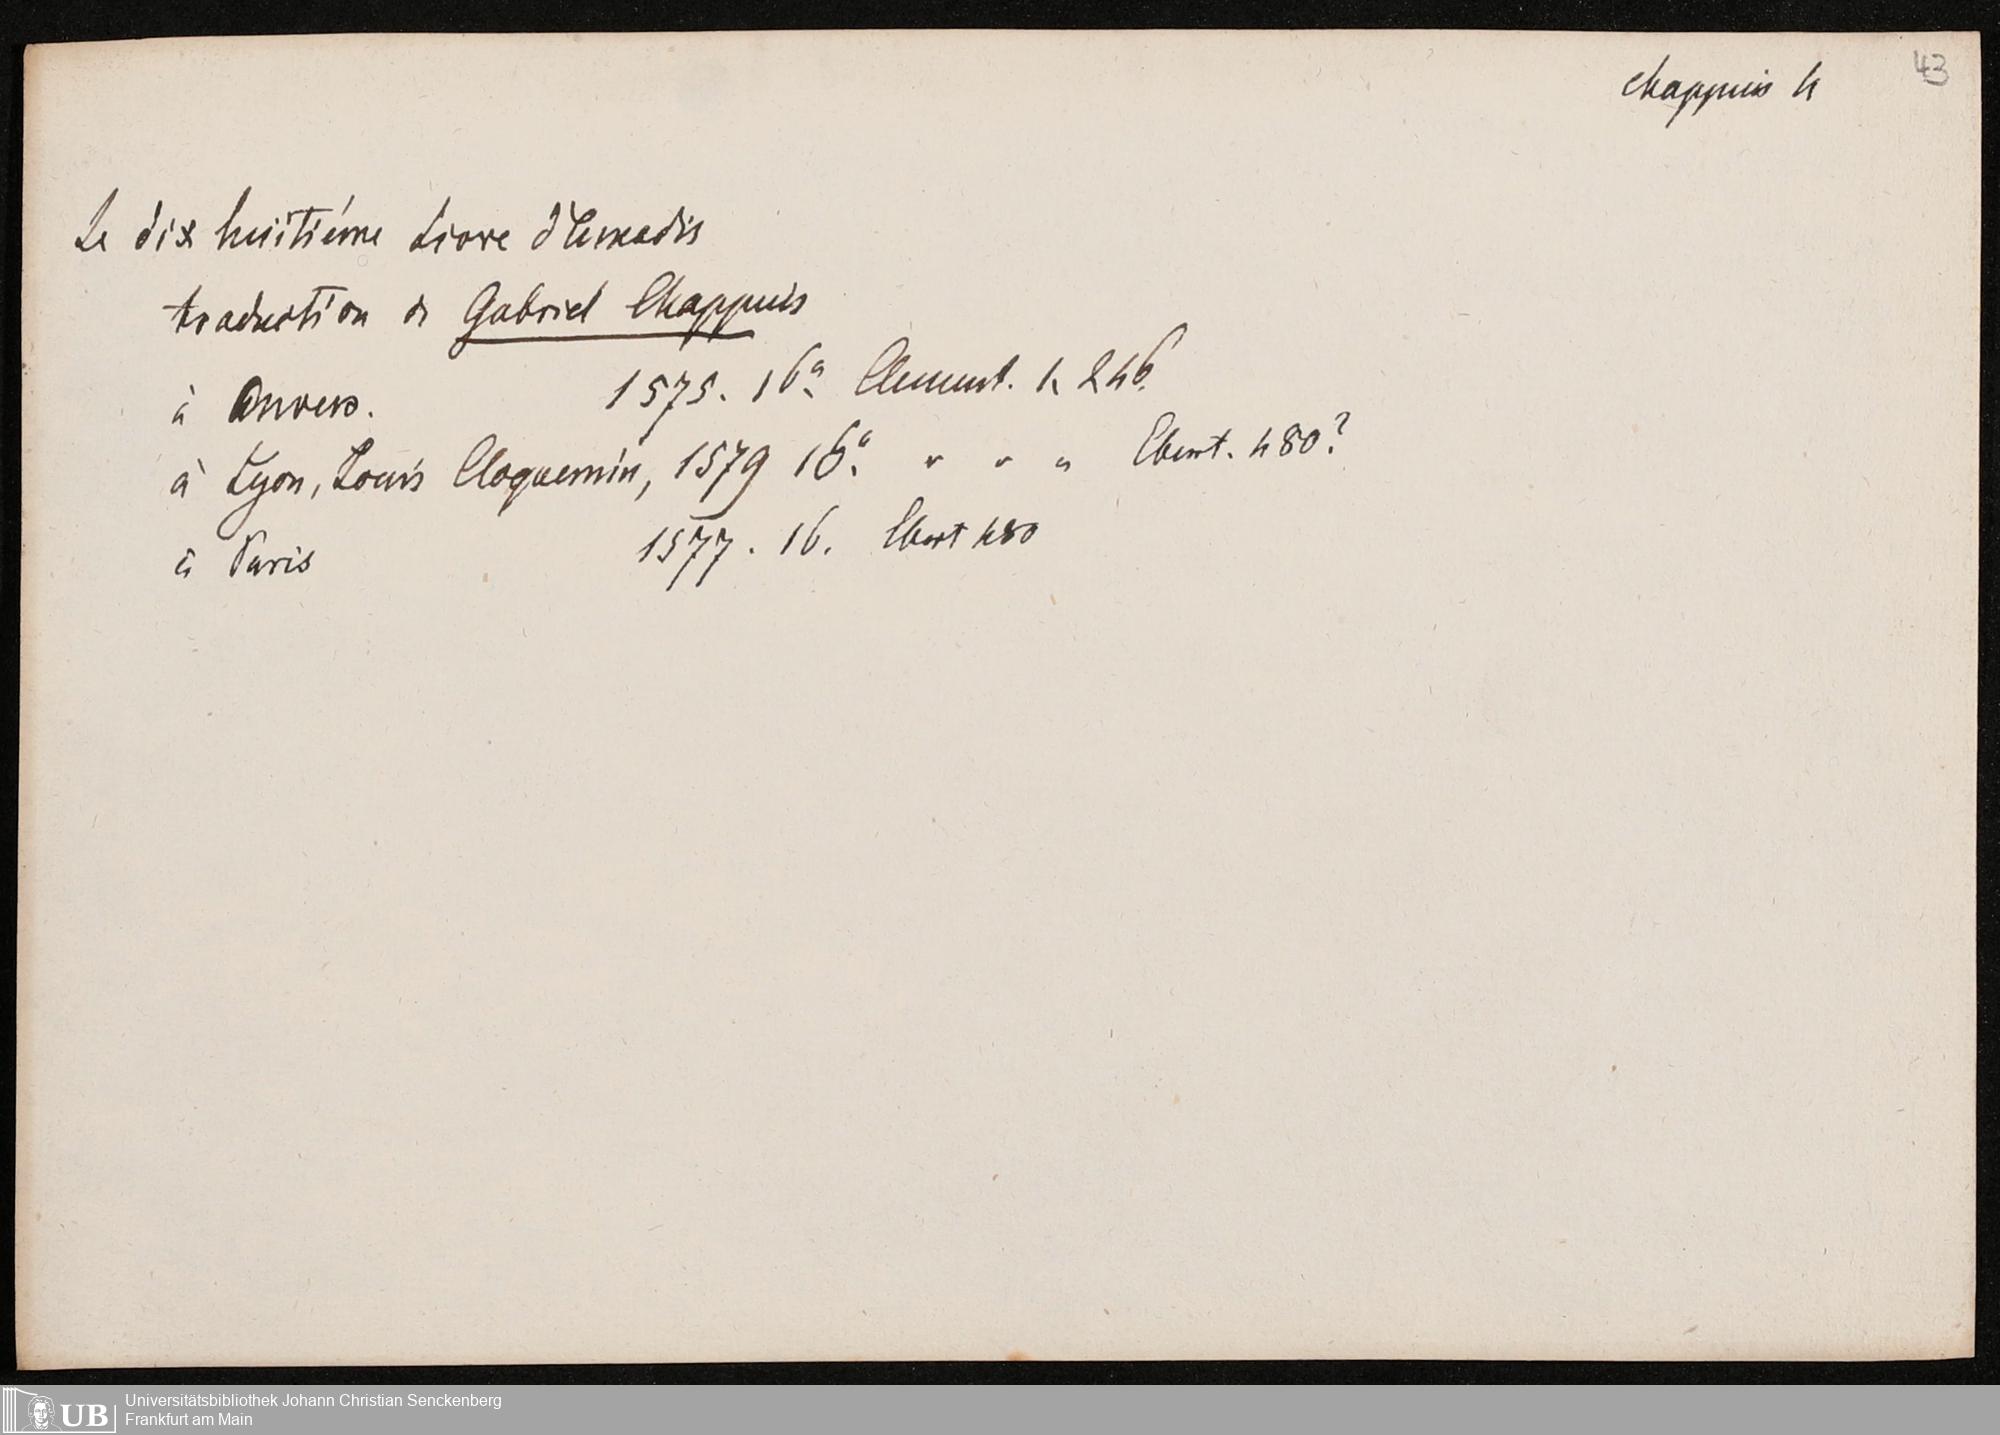 Chappuis 4
43
Le dix huitiéme Livre d'Amadis
traduction de Gabriel Chappuis
à Anvers. 1575. 16° Clement. 1. 246.
à Lyon, Louis Cloquemin, 1579 16° " " " Ebert. 480?
à Paris 1577. 16. Ebert 480
Universitätsbibliothek Johann Christian Senckenberg
Frankfurt am Main
UB